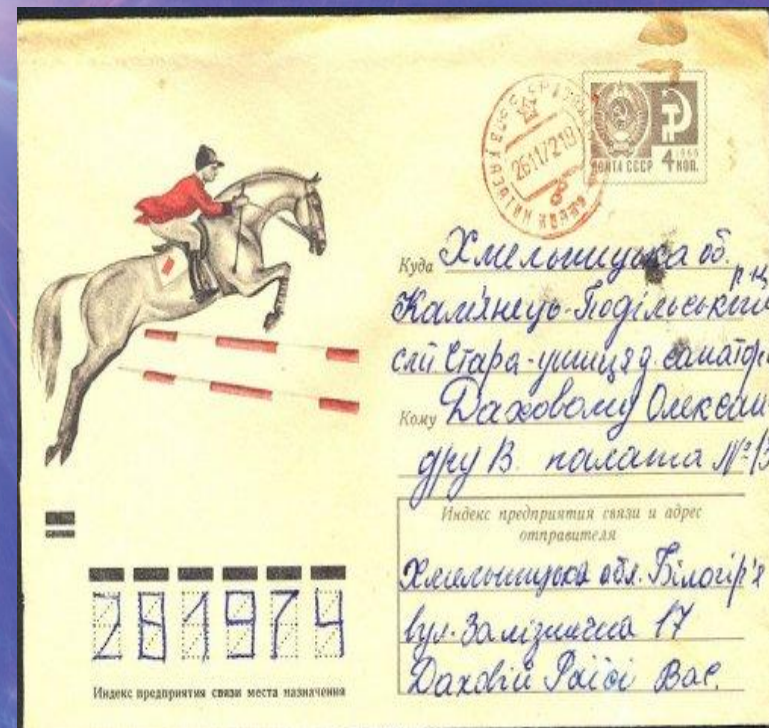 26117219
ПОЧТА СССР 4 КОП.
1966
Куда Хмельницька об.
Кам'янець-Подільський р-н
смт Стара-ушиця санаторі
Кому Даховому Олексан-
дру В. палата №13
Индекс предприятия связи и адрес
отправителя
Хмельницька обл. Білогір'я
вул. Залізнична 17
Даховій Раїсі Вас.
281974
Индекс предприятия связи места назначения